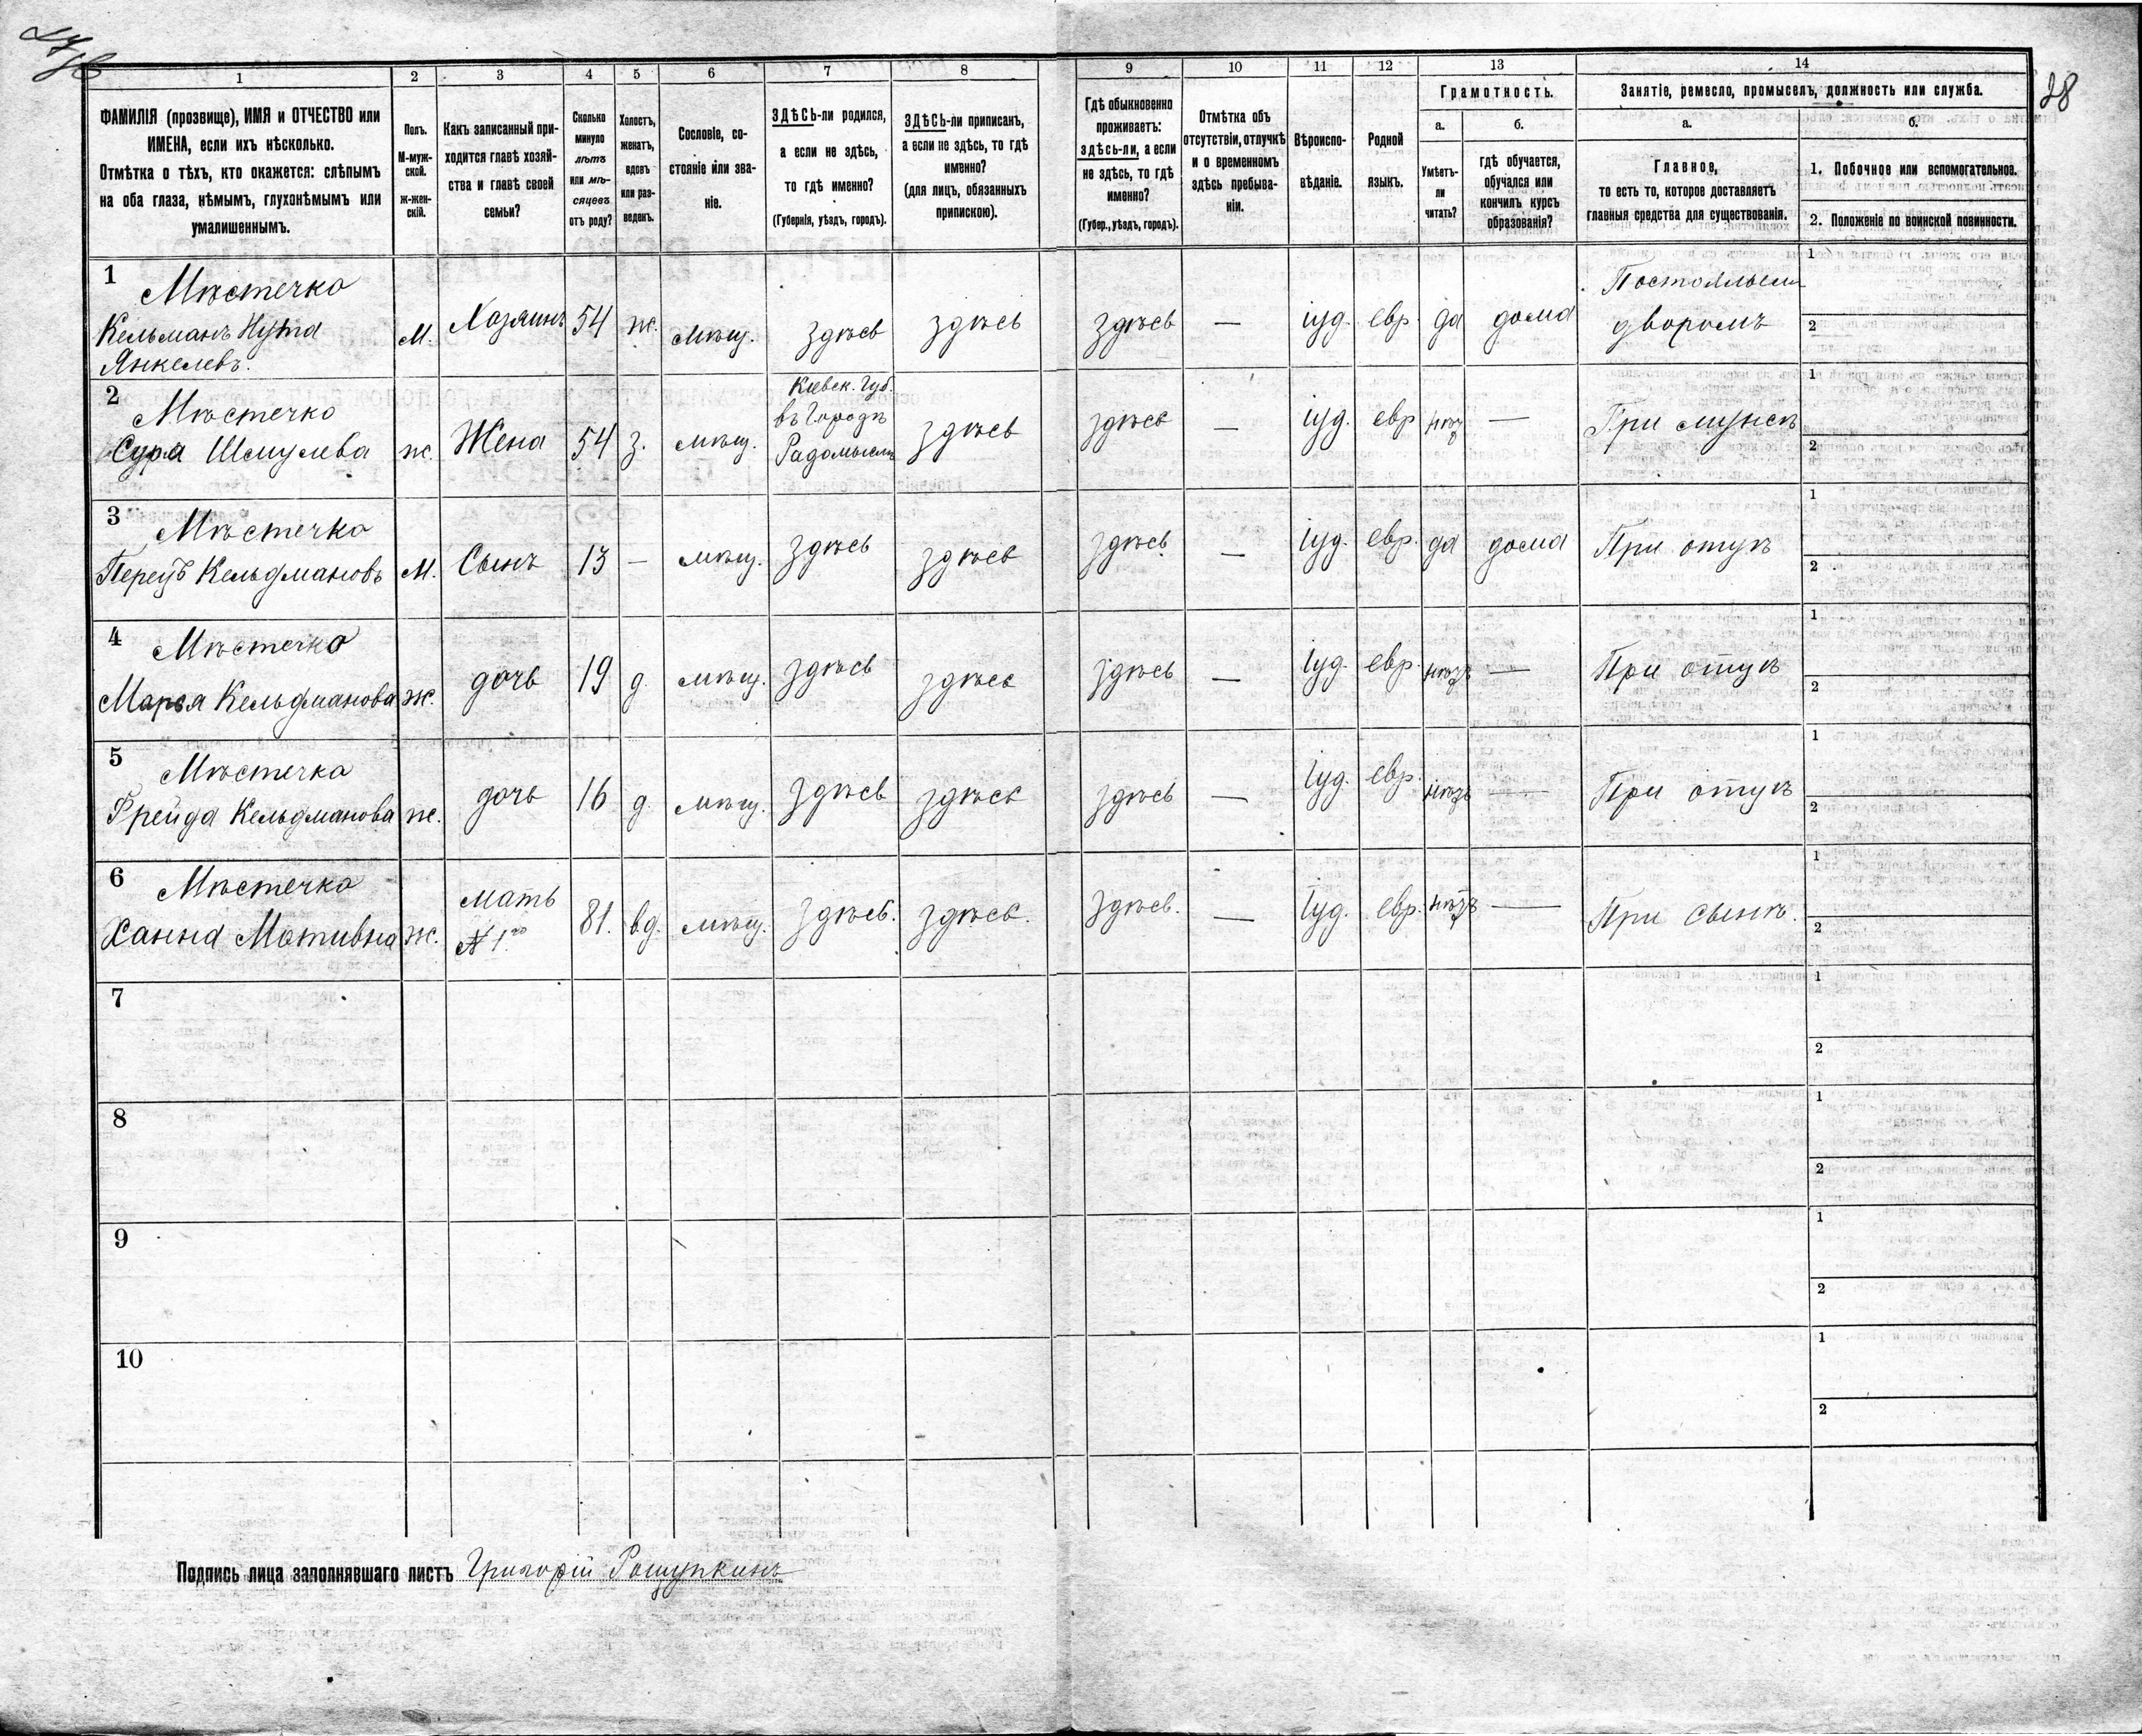 28
1 2 3 4 5 6 7 8 9 10 11 12 13 14
ФАМИЛІЯ (прозвище), ИМЯ и ОТЧЕСТВО или
ИМЕНА, если ихъ нѣсколько.
Отмѣтка о тѣхъ, кто окажется: слѣпымъ
на оба глаза, нѣмымъ, глухонѣмымъ или
умалишеннымъ.
Полъ.
М-муж-
ской.
ж-жен-
скій.
Какъ записанный при-
ходится главѣ хозяй-
ства и главѣ своей
семьи?
Сколько
минуло
лѣтъ
или мѣ-
сяцевъ
отъ роду?
Холостъ,
женатъ,
вдовъ
или раз-
веденъ.
Сословіе, со-
стояніе или зва-
ніе.
ЗДѢСЬ-ли родился,
а если не здѣсь,
то гдѣ именно?
(Губернія, уѣздъ, городъ).
ЗДѢСЬ-ли приписанъ,
а если не здѣсь, то гдѣ
именно?
(для лицъ, обязанныхъ
припискою).
Гдѣ обыкновенно
проживаетъ:
здѣсь-ли, а если
не здѣсь, то гдѣ
именно?
(Губер., уѣздъ, городъ).
Отмѣтка объ
отсутствіи, отлучкѣ
и о временномъ
здѣсь пребыва-
ніи.
Вѣроиспо-
вѣданіе.
Родной
языкъ.
Грамотность.
а.
Умѣетъ-
ли
читать?
б.
гдѣ обучается,
обучался или
кончилъ курсъ
образованія?
Занятіе, ремесло, промыселъ, должность или служба.
а.
Главное,
то есть то, которое доставляетъ
главныя средства для существованія.
б.
1. Побочное или вспомогательное.
2. Положеніе по воинской повинности.
1 Мѣстечко
Кельманъ Нута
Янкелевъ.
М. Хозяинъ 54 ж. мѣщ. здѣсь здѣсь здѣсь — іуд. евр. да дома
дворомъ
1
2
2 Мѣстечко
Сура Шмулева
ж. Жена 54 з. мѣщ.
Кіевск. Губ.
въ Городѣ
Радомысль
здѣсь здѣсь — іуд. евр — При мужѣ
1
2
3 Мѣстечко
Перецъ Кельдмановъ
М. Сынъ 13 — мѣщ. здѣсь здѣсь здѣсь — іуд. евр. да дома При отцѣ
1
2
4 Мѣстечко
Марья Кельдманова
ж. дочь 19 д. мѣщ. здѣсь здѣсь здѣсь — іуд. евр. — При отцѣ
1
2
5 Мѣстечко
Фрейда Кельдманова
ж. дочь 16 д. мѣщ. здѣсь здѣсь здѣсь — іуд. евр. — При отцѣ
1
2
6 Мѣстечко
Ханна Мотивна
ж. мать
№ 1го
81. вд. мѣщ. здѣсь. здѣсь. здѣсь. — іуд. евр. — При сынѣ.
1
2
7
1
2
8
1
2
9
1
2
10
1
2
Подпись лица заполнявшаго листъ Григорій Рощупкинъ